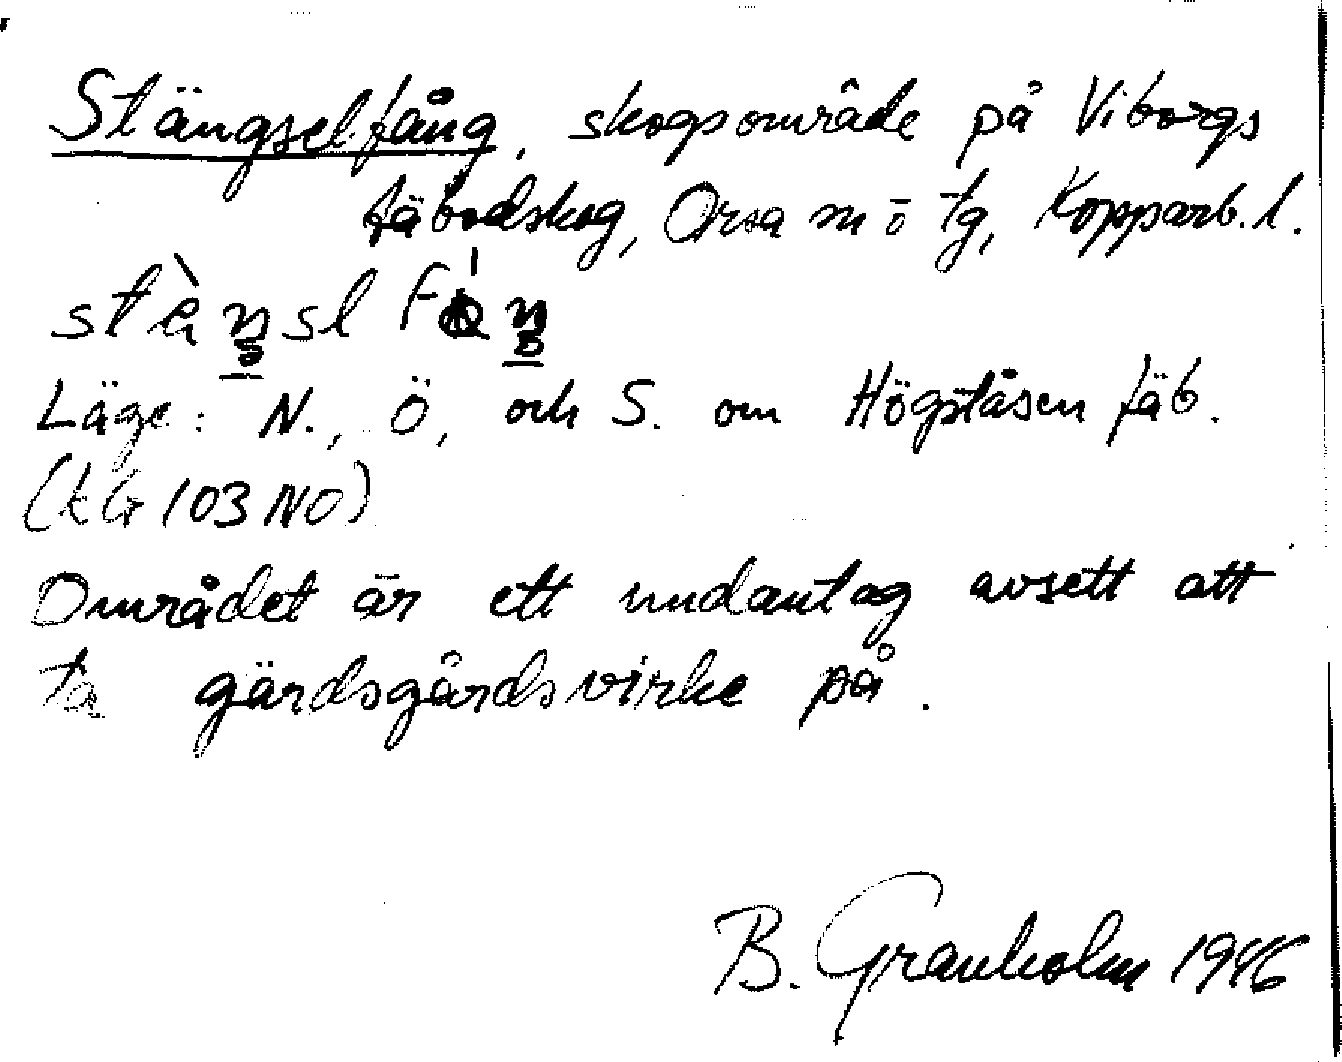 Stängselfång, skogsområde på Viborgs
fäbodskog, Orsa sn o tg, Kopparb. l.
stàŋsl fàŋ
Läge: N., Ö, och S. om Högståsen fäb.
(kG 103 NO)
Området är ett undantag avsett att
ta gärdsgårdsvirke på.
B. Granholm 1946